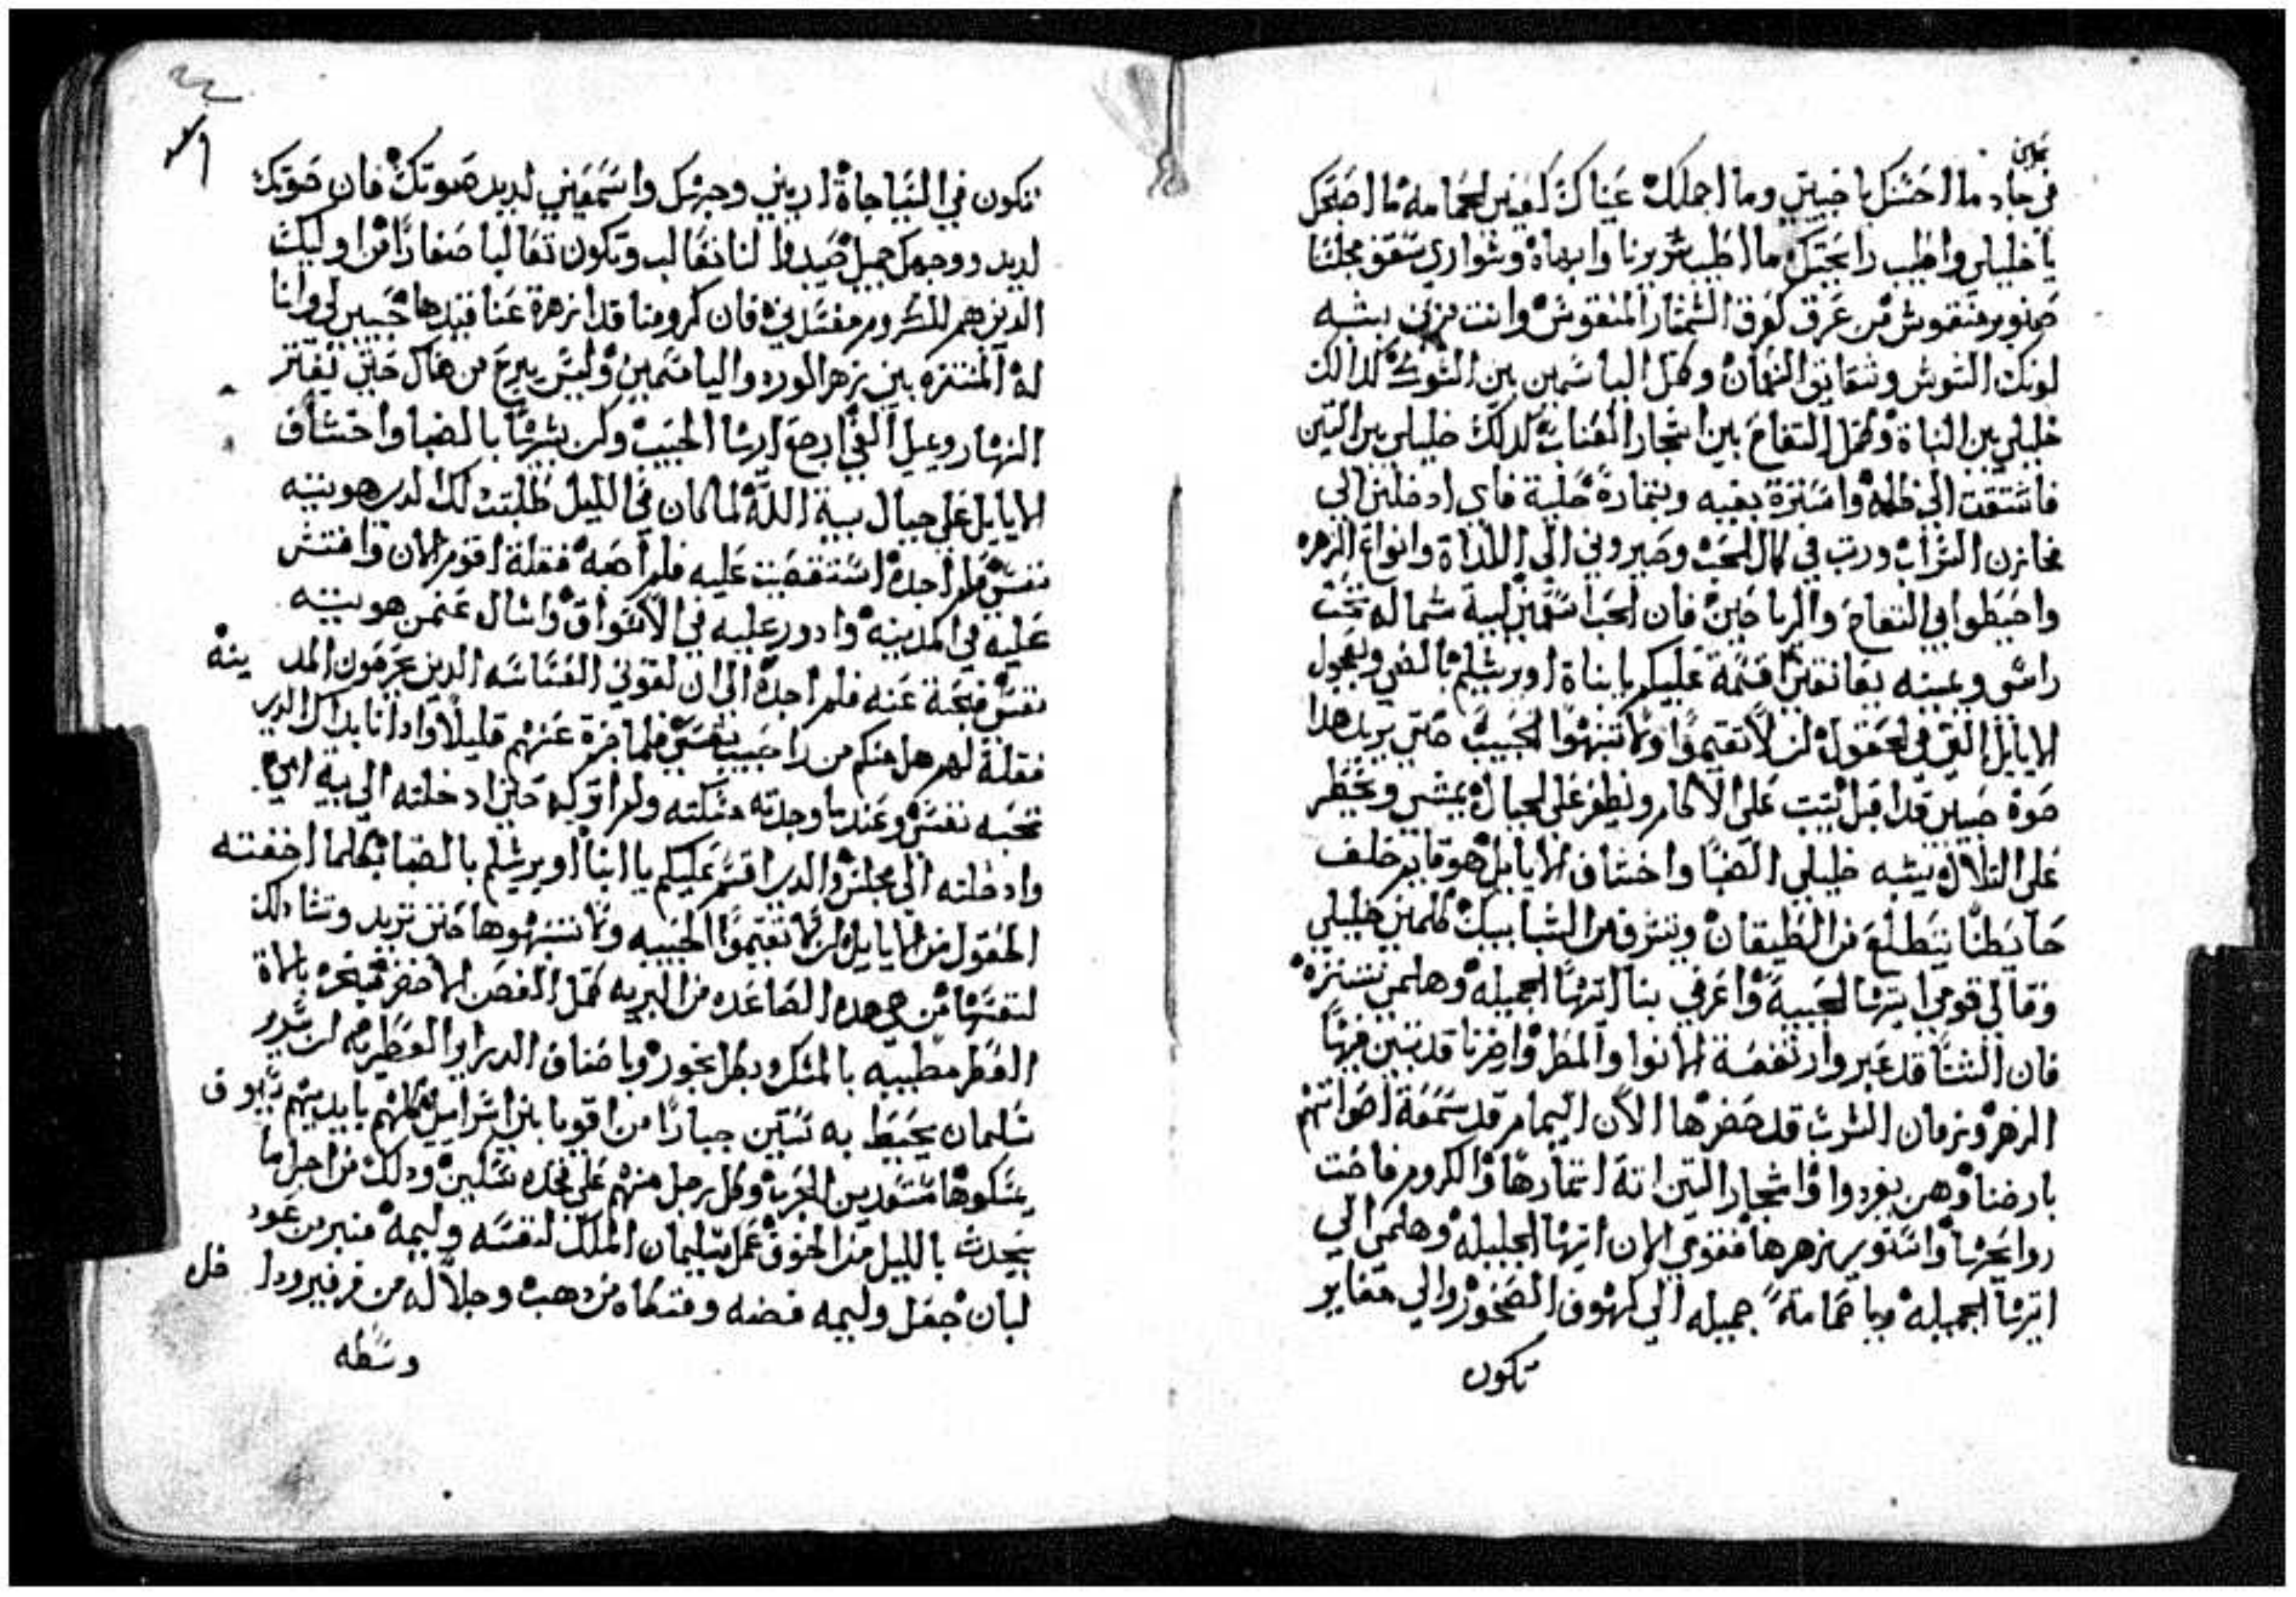 عين
في جاد ما احسنك يا حبيبتي وما اجملك عيناك كعينين الحمامه ما اصحك
يا خليلي واطيب رايحتك ما اطيب سريرنا وابهاه وشواري سقف مجلسنا
صنوبر منقوش من عرق كعرق الشمشار المنقوش وانت نرى بيشبه
لونك السوش وشقايق النعمان وكمثل الياسمين بين الشوك كدالك
خليلي بين البناة وكمثل التفاح بين اشجار الغنابه كدلك خليلي بين البنين
فاشتقت الي ظله واستنزة بفيه وبثمارة حلية فاي ادخلني الي
مخازن الشراب ورت في كمال الحب وصيروني الي اللذاة وانواع الزهره
واحيطوا بي التفاح والرياحين فان الحب اسقمني ليه شماله تحت
راسي ويمينه يعانقني اقسمة عليكم يا بناة اورشليم بالضبي وبعجول
الايايل التي في الحقول لن لا تقيموا ولا تنبهوا الحبيب حتي يريد هدا
صوة حبيبي قد اقبل يتب علي الاكام ويطفر علي الجبال يمشي ويخطر
علي التلال بيشبه خليلي الضبا واخشاف الايايل هوقايم خلف
حايطنا يتطلع من الطيقان ويشرف من الشبابيك كلمني خليلي
وقالي قومي ايتها الحبيبة واعرفي بنا ايتها الجميله وهلمي نتنزه
فان الشتا قد عبر وارتفعة الانوا والمطر وارضنا قد تبين فيها
الزهر وزمان الشرب قد حضر ها الان اليمام قد سمعة اصواتهم
بارضنا وهن يغردوا واشجار التين اتة اثمارها والكروم فاحت
روايحها واستوير زهرها فقومي الان ايتها الجليله وهلمي الي
ايتها الجميله ويا حمامة جميله الي كهوف الصخور والي مغاير
تكون
تكون في النياجاة اريني وجهك واسمعيني لديد صوتك فان صوتك
لديد ووجهك جميل صيدوا لنا ثعالب وتكون ثعالبا صغارا اوليك
الدين هم للكروم مفسدين فان كرومنا قد ازهرة عنا فيدها حبيبي لي وانا
له المتنزه بين زهر الورد والياسمين وليس يبرح من هناك حتي يفتر
النهار ويميل الفي ارجع ايها الحبيب وكن بشبها بالضبا واخشاف
الايايل علي جبال بيية الله لما كان في الليل طلبت لك الدي هويته
نفسي فلم اجده استقصيت عليه فلم اصبه فقلة اقوم الان وافتش
عليه في المدينه وادور عليه في الاسواق واسال عنمن هويته
نفسي فبحتة عنه فلم اجده الي ان لقوني العساسه الدين يحرسون المدينه
فقلة لهم هل منكم من را حبيب نفسي فلما جزة عنهم قليلا وادا انا بداك الدي
تحبه نفسي وعندما وجدته مسكته ولم اتركه حتي ادخلته الي بية امي
وادخلته الي مجلس والدي اقسم عليكم يا ابنا اويرشليم بالضبا بكلما اخفته
الحقول من الايايل لن لا تقيموا الحبيبه ولا تنبهوها حتي تريد وتشا دلك
لنفسها من هي هده الصاعده من البريه كمثل الغصن الاخضر مبخره بالاة
العطر مطيبه بالمسك وبكل بخور وباصناف الدراو العطريه لن سرير
سليمان يحيط به ستين جبارا من اقويا بني اسراييل كلهم بايديهم سيوف
يمسكوها مستعدين للحرب وكل رجل منهم علي فخده سكين ودلك من اجل ما
يحدث بالليل من الخوف عمل سليمان الملك لنفسه وليمه منبر من عود
لبان جعل وليمه فضه ومتكاه من دهب وجلاله من فرفير وداخل
وسطه